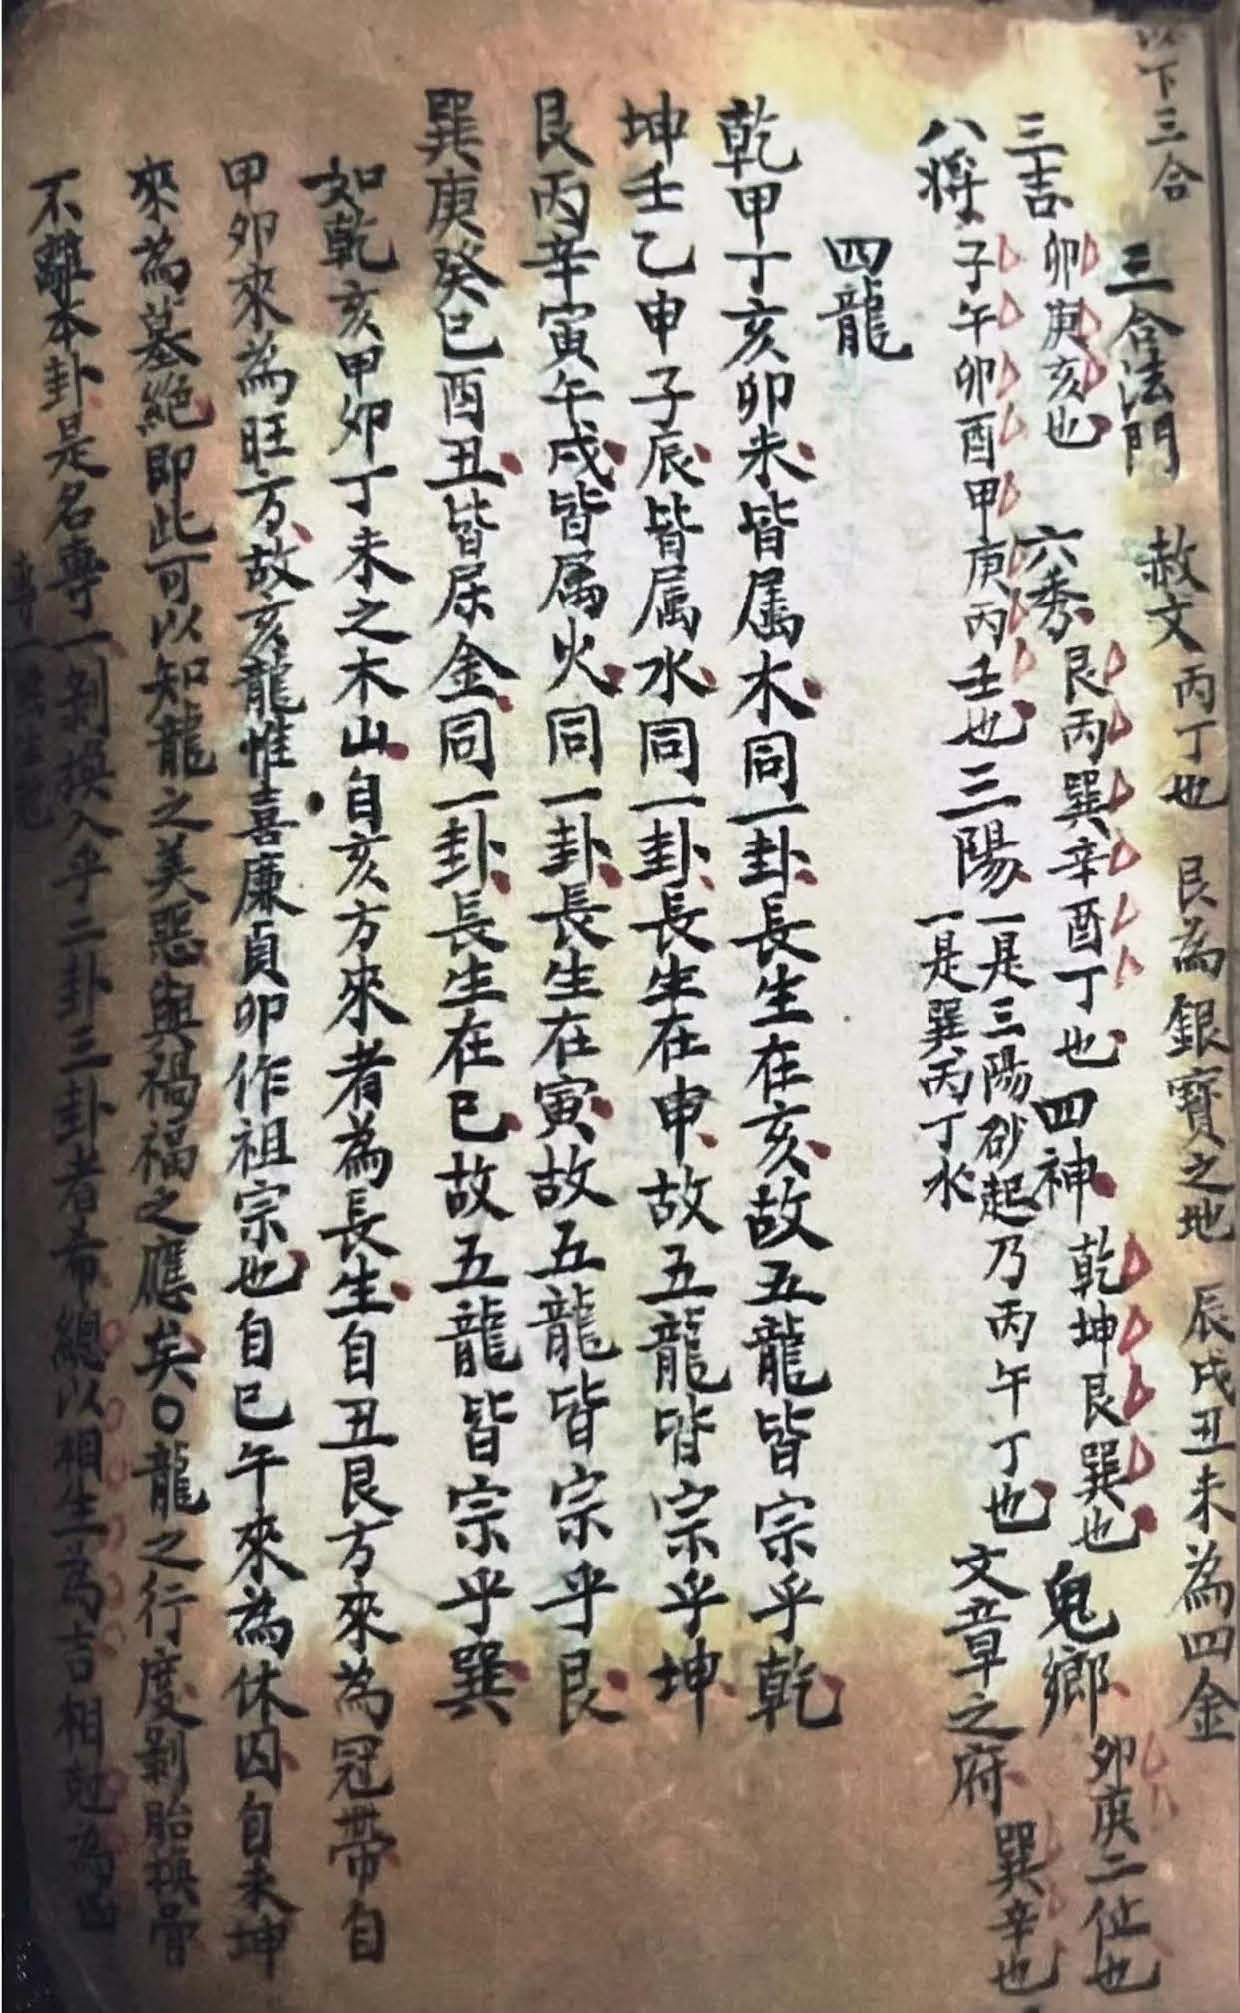 以下三合
三合法門　赦文　丙丁也　艮為銀寶之地　辰戌丑未為四金
三吉　卯庚亥也　六秀　艮丙巽辛酉丁也　四神　乾坤艮巽也　鬼鄉　卯庚二位也
八將　子午卯酉甲庚丙壬也　三陽　一是三陽砂起乃丙午丁也　文章之府　巽辛也
一是巽丙丁水
四龍
乾甲丁亥卯未皆属木同一卦長生在亥故五龍皆宗乎乾
坤壬乙申子辰皆属水同一卦長生在申故五龍皆宗乎坤
艮丙辛寅午戌皆属火同一卦長生在寅故五龍皆宗乎艮
巽庚癸巳酉丑皆属金同一卦長生在巳故五龍皆宗乎巽
如乾亥甲卯丁未之木山自亥方來者為長生自丑艮方來為冠帶自
甲卯來為旺方故亥龍惟喜廉貞卯作祖宗也自巳午來為休囚自未坤
來為墓絕即此可以知龍之美惡與禍福之應矣〇龍之行度剝胎換骨
不離本卦是名專一剝換入乎二卦三卦者希總以相生為吉相剋為凶
專一